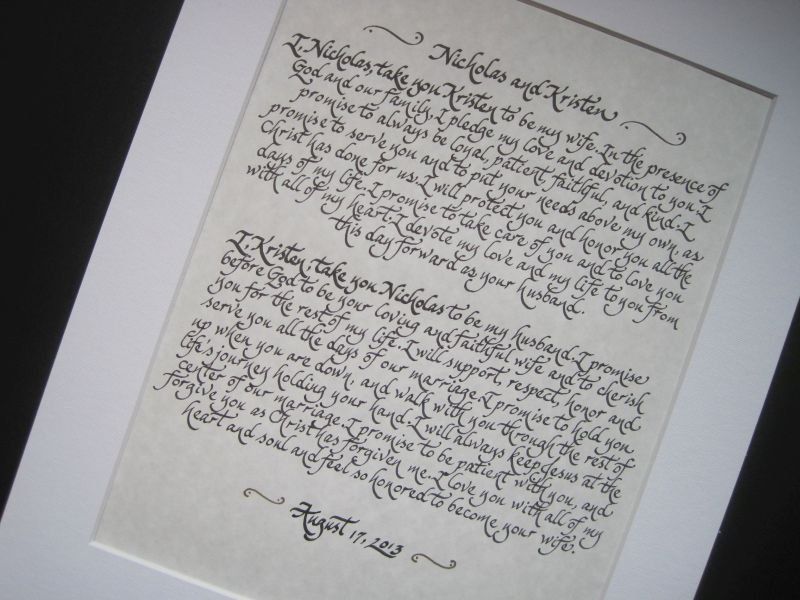 Nicholas and Kristen
I, Nicholas, take you Kristen to be my wife. In the presence of
God and our family, I pledge my love and devotion to you. I
promise to always be loyal, patient, faithful, and kind. I
promise to serve you and to put your needs above my own, as
Christ has done for us. I will protect you and honor you all the
days of my life. I promise to take care of you and to love you
with all of my heart. I devote my love and my life to you from
this day forward as your husband.
I, Kristen, take you Nicholas to be my husband. I promise
before God to be your loving and faithful wife and to cherish
you for the rest of my life. I will support, respect, honor and
serve you all the days of our marriage. I promise to hold you
up when you are down, and walk with you through the rest of
life's journey holding your hand. I will always keep Jesus at the
center of our marriage. I promise to be patient with you, and
forgive you as Christ has forgiven me. I love you with all of my
heart and soul and feel so honored to become your wife.
August 17, 2013